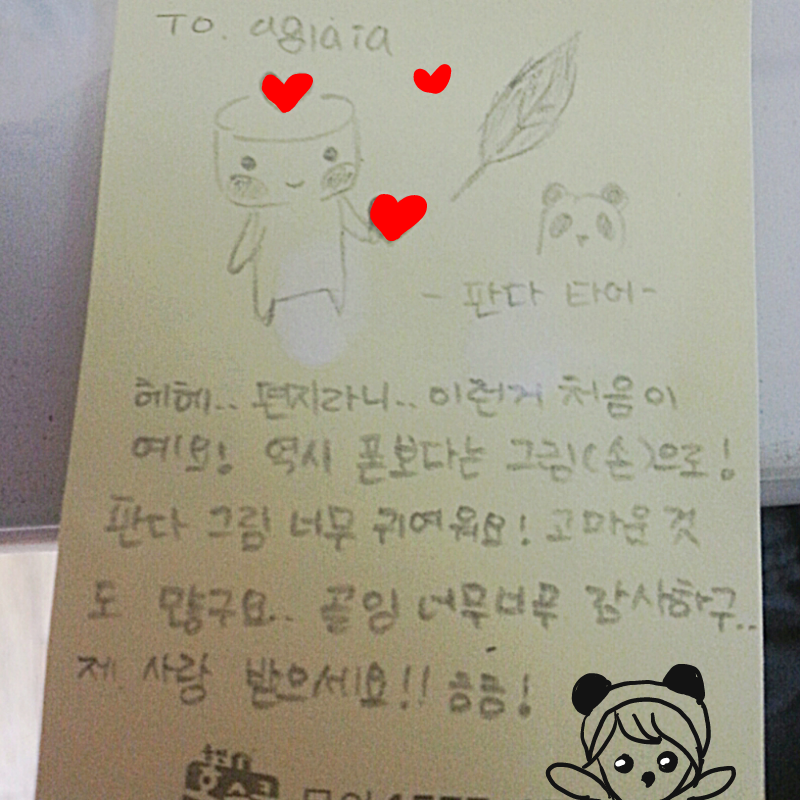 TO. aglaia
- 판다 타어 -
헤헤.. 편지라니.. 이런거 처음이
예요! 역시 폰보다는 그림(손)으로!
판다 그림 너무 귀여워요! 고마운 것
도 많구요.. 골잉 너무너무 감사하구..
제 사랑 받으세요!! 흠흠!